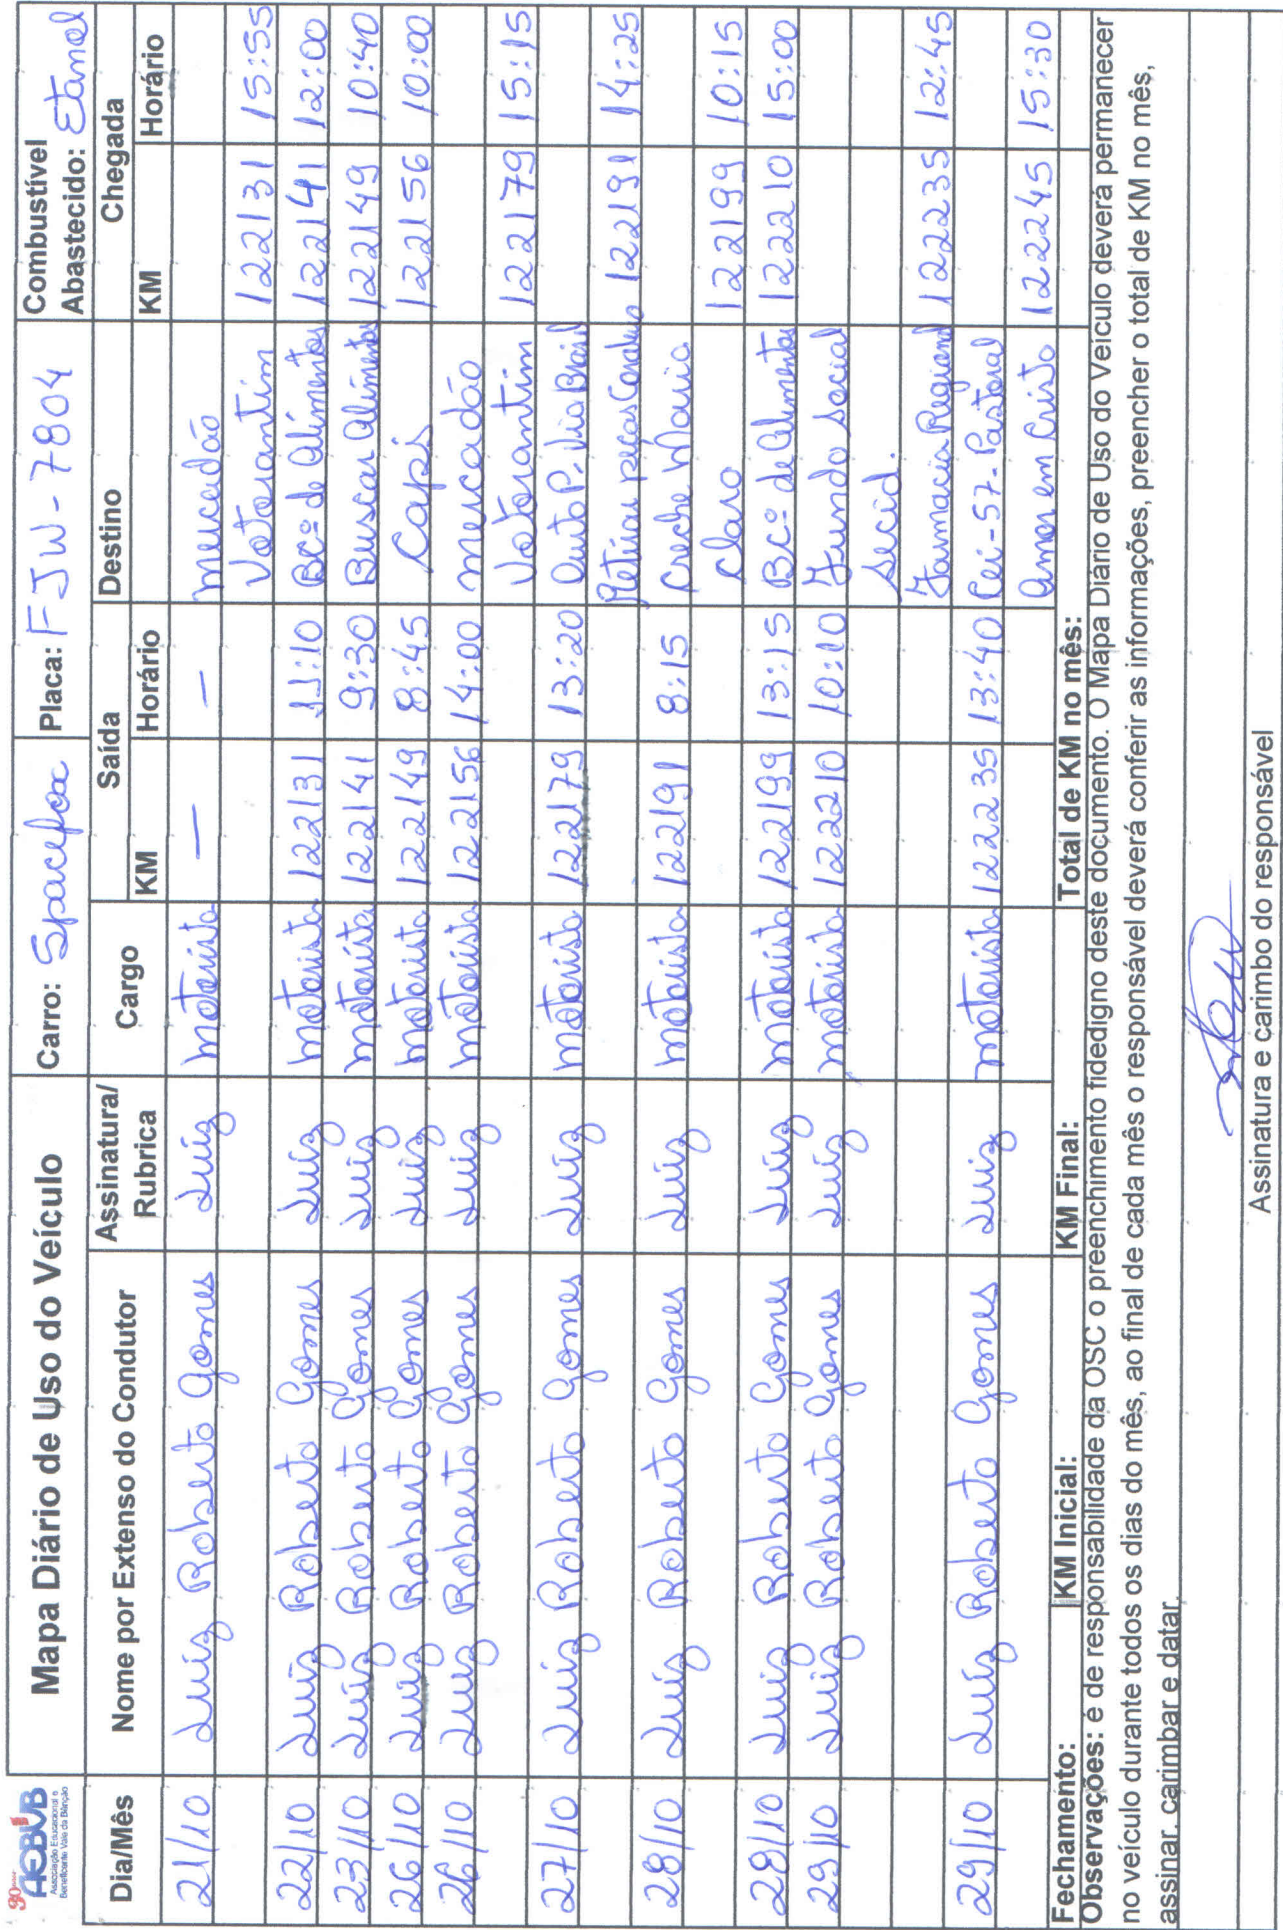 90 anos
AEBVB
Associação Educacional e
Beneficente Vale da Bênção
Mapa Diário de Uso do Veículo
Carro: Spacefox
Placa: FJW-7804
Combustível
Abastecido: Etanol
Dia/Mês
Nome por Extenso do Condutor
Assinatura/
Rubrica
Cargo
Saída
Destino
Chegada
KM
Horário
KM
Horário
21/10 Luiz Roberto Gomes Luiz motorista — — mercadão
Votorantim 122131 15:55
22/10 Luiz Roberto Gomes Luiz motorista 122131 11:10 Bcº de alimentos 122141 12:00
23/10 Luiz Roberto Gomes Luiz motorista 122141 9:30 Buscar alimentos 122149 10:40
26/10 Luiz Roberto Gomes Luiz motorista 122149 8:45 Caps 122156 10:00
26/10 Luiz Roberto Gomes Luiz motorista 122156 14:00 mercadão
Votorantim 122179 15:15
27/10 Luiz Roberto Gomes Luiz motorista 122179 13:20 Auto P. Via Brasil
Retirar peças 122191 14:25
28/10 Luiz Roberto Gomes Luiz motorista 122191 8:15 Creche Maria
Claro 122199 10:15
28/10 Luiz Roberto Gomes Luiz motorista 122199 13:15 Bcº de alimentos 122210 15:00
29/10 Luiz Roberto Gomes Luiz motorista 122210 10:10 Fundo social
Secid.
Farmacia Regiani 122235 12:45
29/10 Luiz Roberto Gomes Luiz motorista 122235 13:40 Cei-57-Pastoral
Amor em Cristo 122245 15:30
Fechamento:
KM Inicial:
KM Final:
Total de KM no mês:
Observações: é de responsabilidade da OSC o preenchimento fidedigno deste documento. O Mapa Diário de Uso do Veículo deverá permanecer
no veículo durante todos os dias do mês, ao final de cada mês o responsável deverá conferir as informações, preencher o total de KM no mês,
assinar, carimbar e datar.
Assinatura e carimbo do responsável